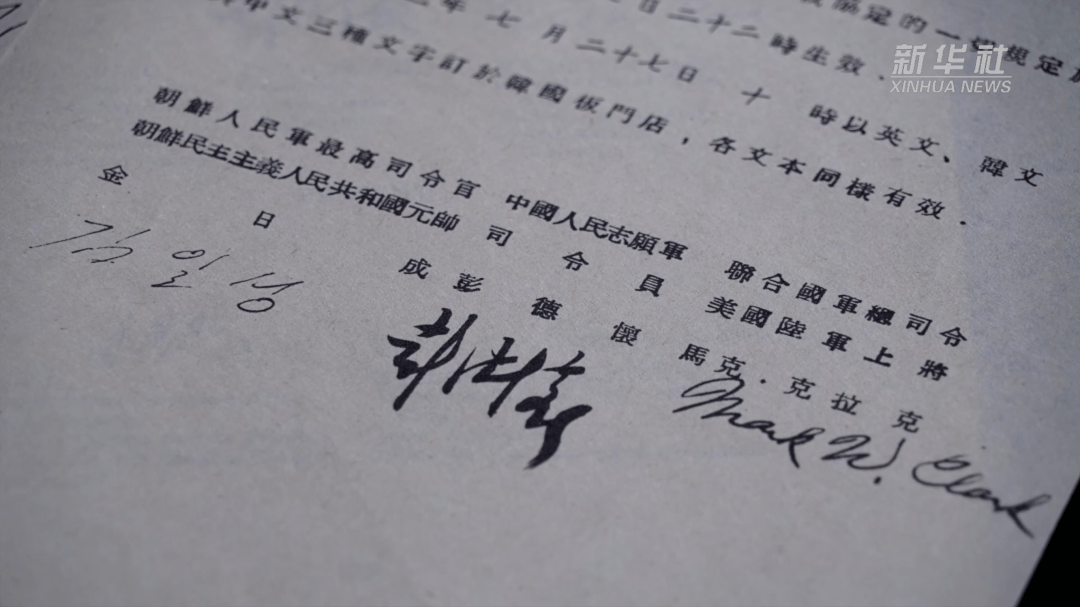 新华社
XINHUA NEWS
協定的一切規定
日二十二時生效.
年七月二十七日十時以英文、韓文
中文三種文字訂於韓國板門店，各文本同樣有效.
朝鮮人民軍最高司令官
朝鮮民主主義人民共和國元帥
金日成
김일성
中國人民志願軍
司令員
彭德懷
彭德懷
聯合國軍總司令
美國陸軍上將
馬克·克拉克
Mark W. Clark